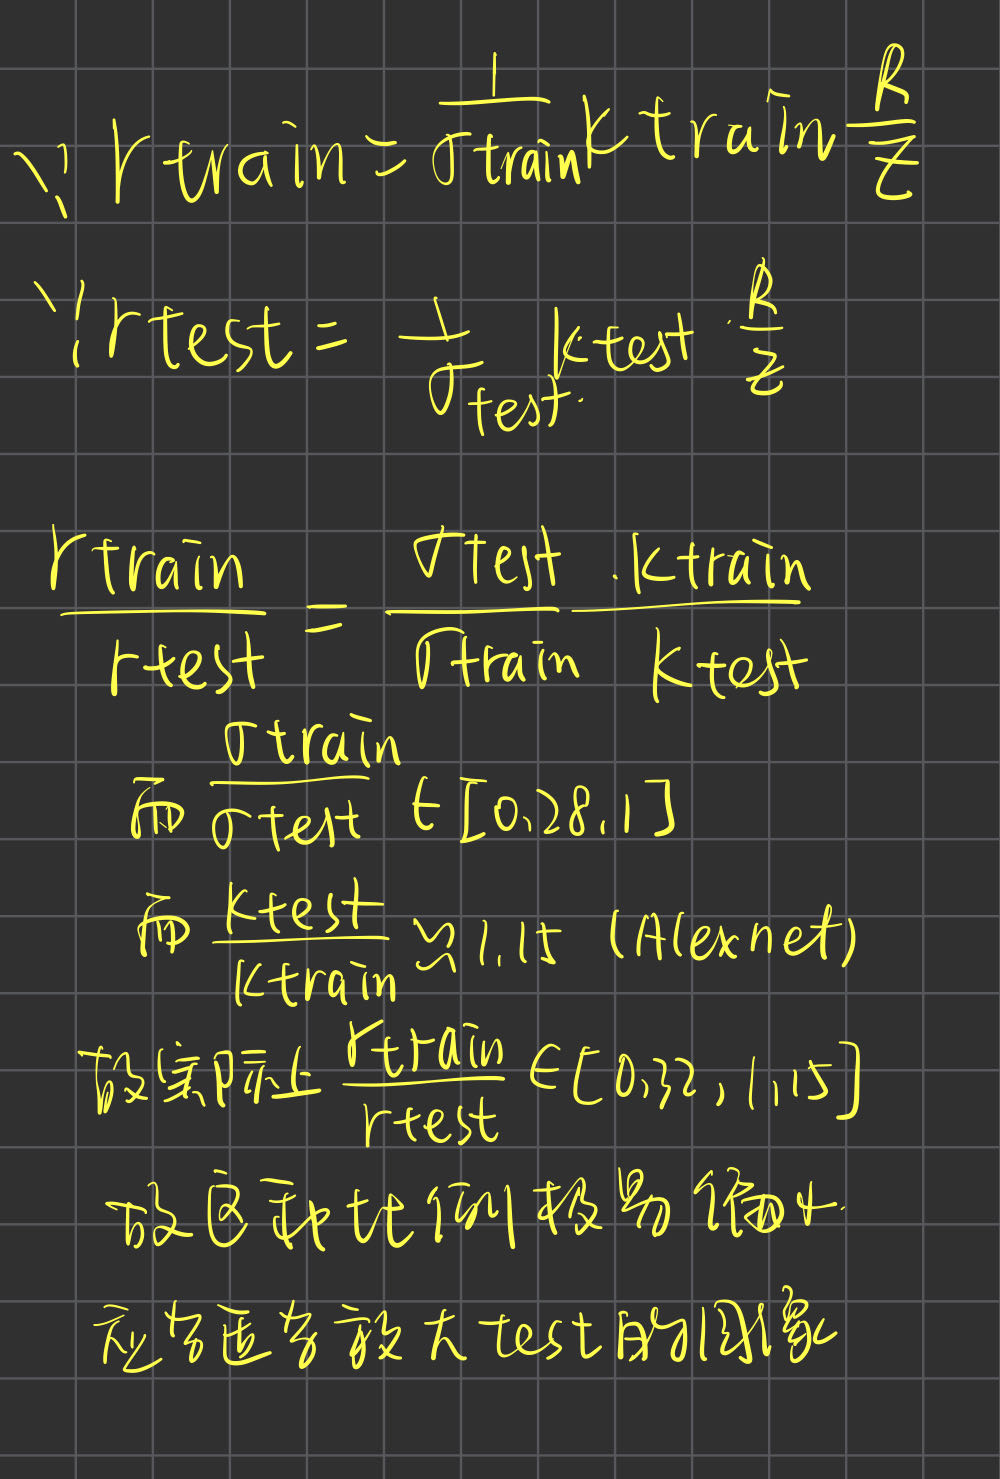 ∵ rtrain = 1/σtrain ktrain R/Z
∵ rtest = 1/σtest · ktest · R/Z
rtrain/rtest = σtest/σtrain · ktrain/ktest
而 σtrain/σtest ∈ [0.28, 1]
而 ktest/ktrain ≈ 1.15 (Alexnet)
故实际上 rtrain/rtest ∈ [0.32, 1.15]
故这种比例极易偏小
应当适当放大test的图象